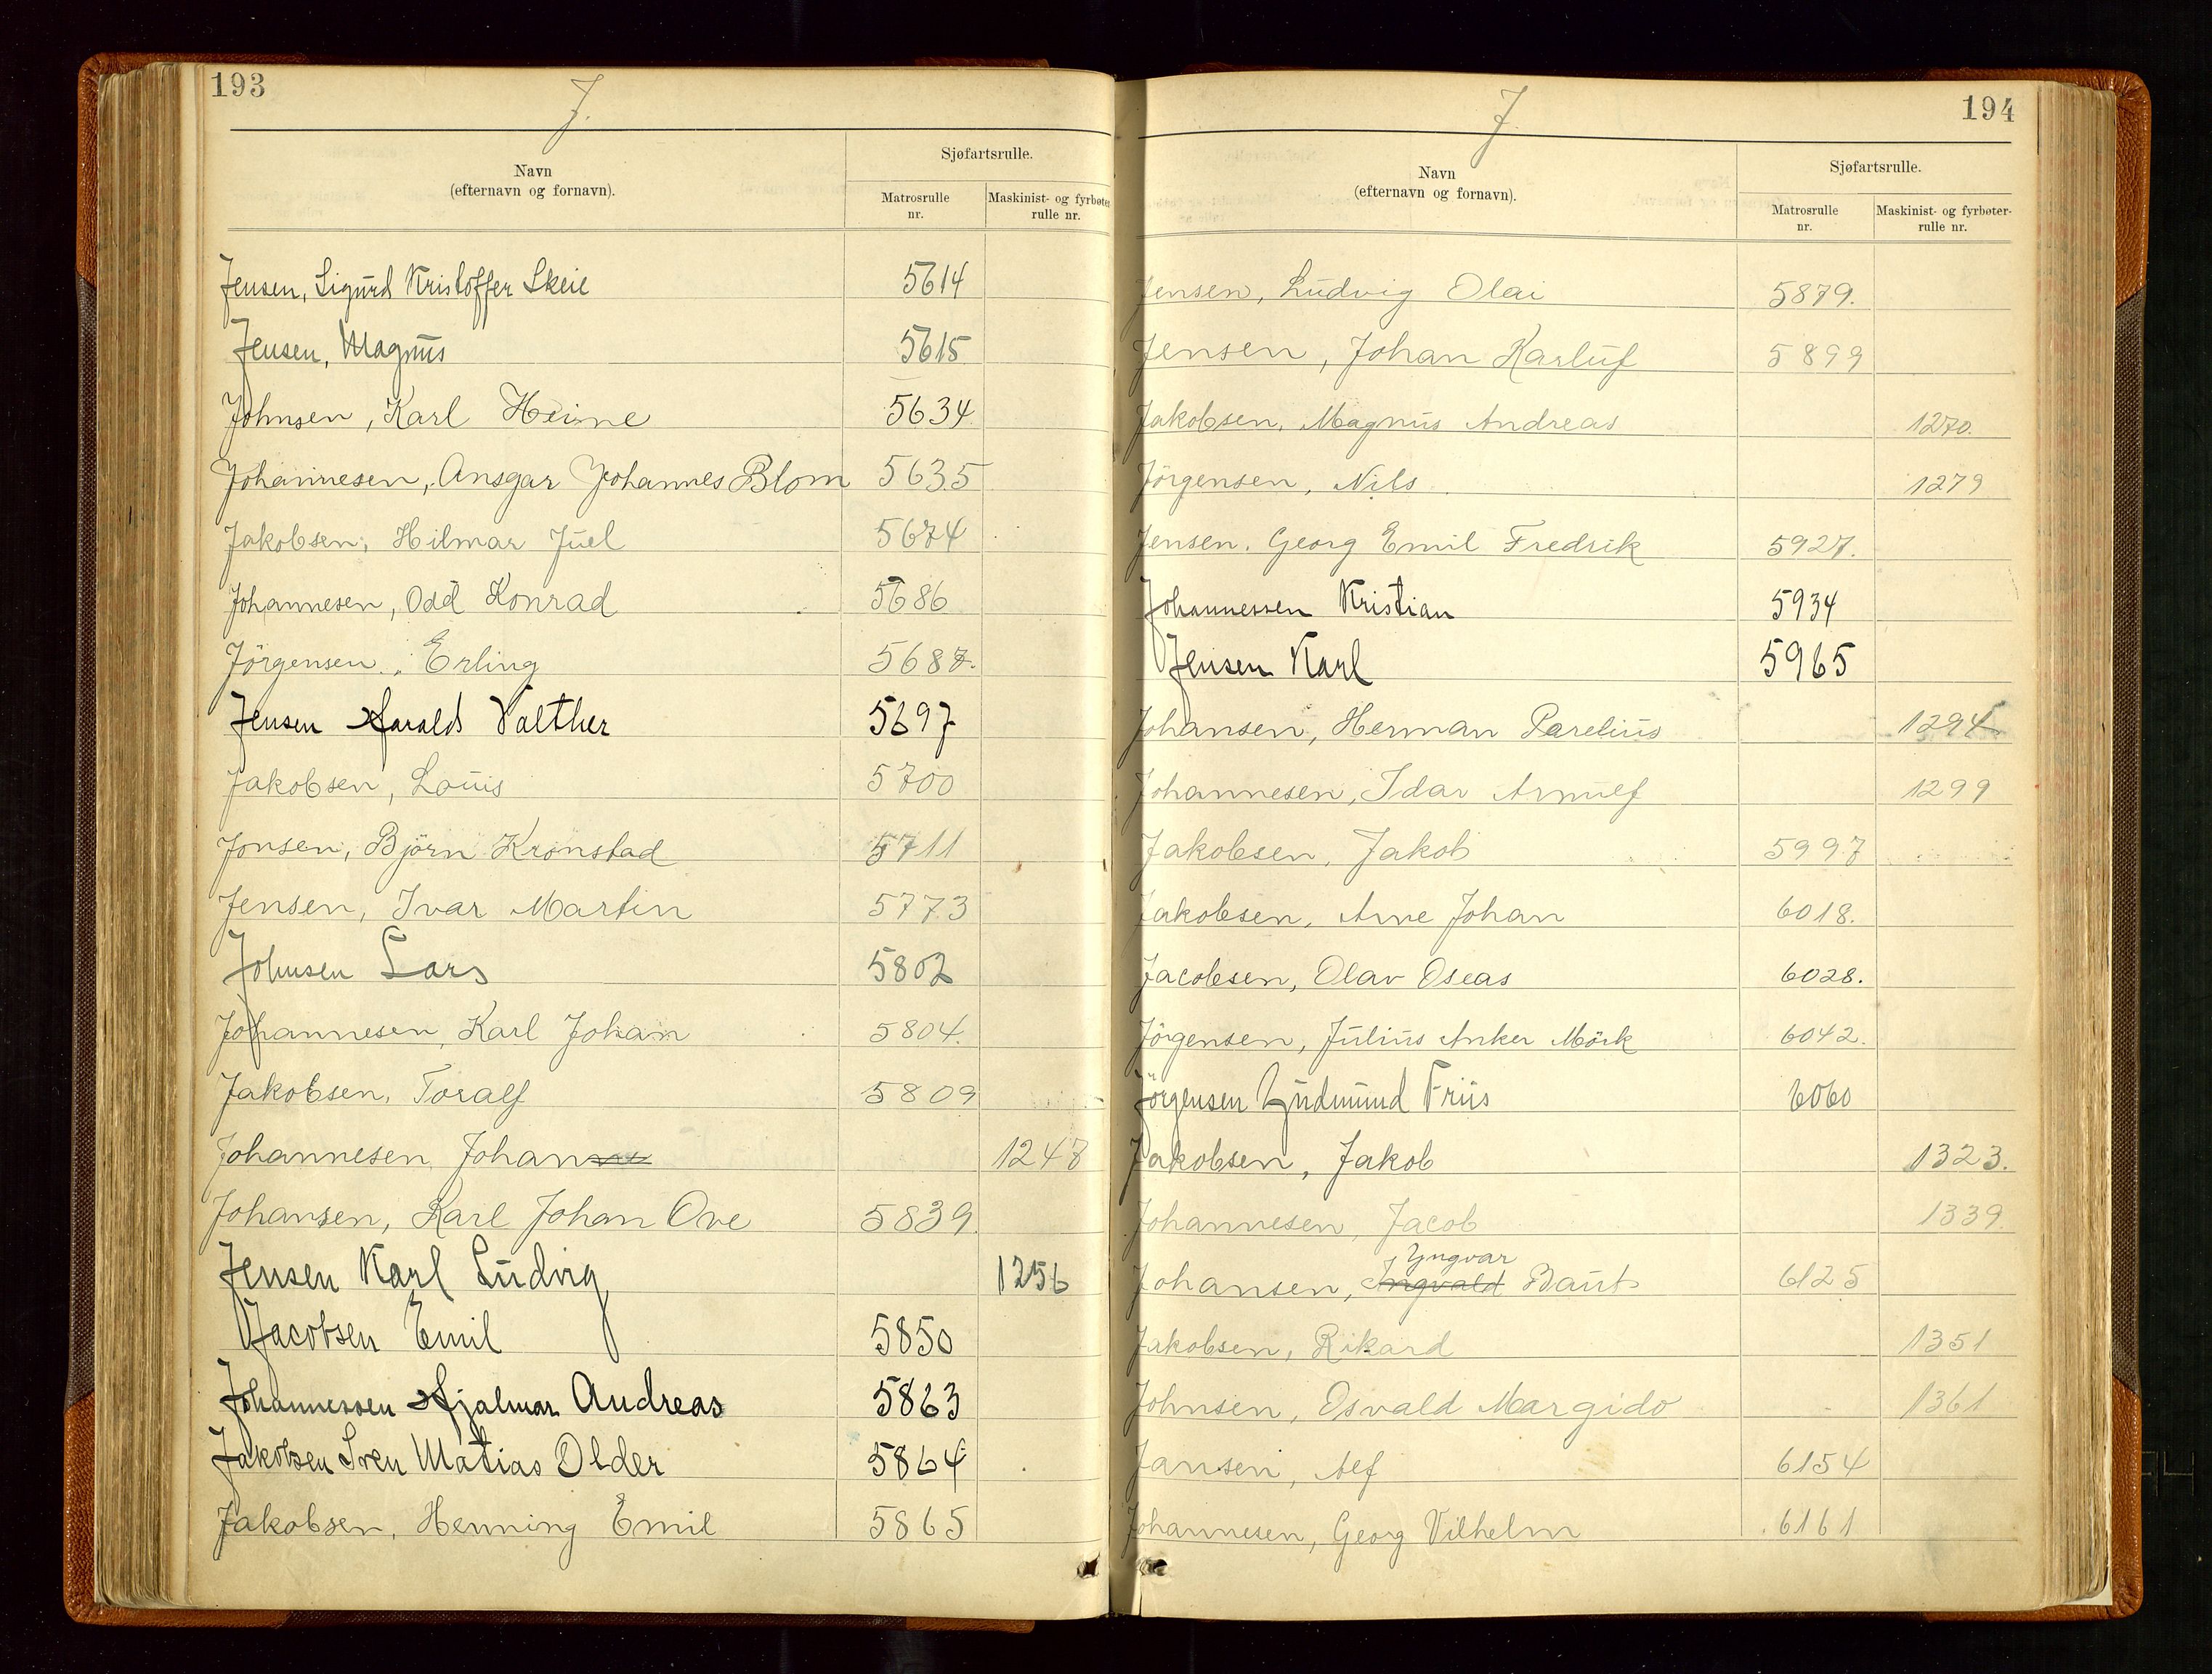 193
J.
Navn
(efternavn og fornavn).
Sjøfartsrulle.
Matrosrulle
nr.
Maskinist- og fyrbøter
rulle nr.
Jensen, Sigurd Kristoffer Skeie 5614
Jensen, Magnus 5615
Johnsen, Karl Heine 5634
Johannesen, Ansgar Johannes Blom 5635
Jakobsen, Hilmar Juel 5674
Johannesen, Odd Konrad 5686
Jörgensen, Erling 5687.
Jensen Harald Valther 5697
Jakobsen, Louis 5700
Jonsen, Björn Kronstad 5711
Jensen, Ivar Martin 5773
Johnsen Lars 5802
Johannesen, Karl Johan 5804.
Jakobsen, Toralf 5809
Johannesen, Johannes 1248
Johansen, Karl Johan Ove 5839
Jensen Karl Ludvig 1256
Jacobsen Emil 5850
Johannessen Hjalmar Andreas 5863
Jakobsen Sven Matias Older 5864
Jakobsen, Henning Emil 5865
194
J.
Navn
(efternavn og fornavn).
Sjøfartsrulle.
Matrosrulle
nr.
Maskinist- og fyrbøter-
rulle nr.
Jensen, Ludvig Olai 5879.
Jensen, Johan Karluf 5899
Jakobsen, Magnus Andreas 1270.
Jörgensen, Nils 1279
Jensen, Georg Emil Fredrik 5927.
Johannessen Kristian 5934
Jensen Karl 5965
Johansen, Herman Parelius 1294
Johannesen, Idar Arnulf 1299
Jakobsen, Jakob 5997
Jakobsen, Arne Johan 6018.
Jacobsen, Olav Oseas 6028.
Jörgensen, Julius Anker Mörk 6042.
Jörgensen Gudmund Friis 6060
Jakobsen, Jakob 1323.
Johannesen, Jacob 1339.
Yngvar
Johansen, Ingvald 6125
Jakobsen, Rikard 1351
Johnsen, Osvald Margido 1361
Jansen, Alf 6154
Johannesen, Georg Vilhelm 6161